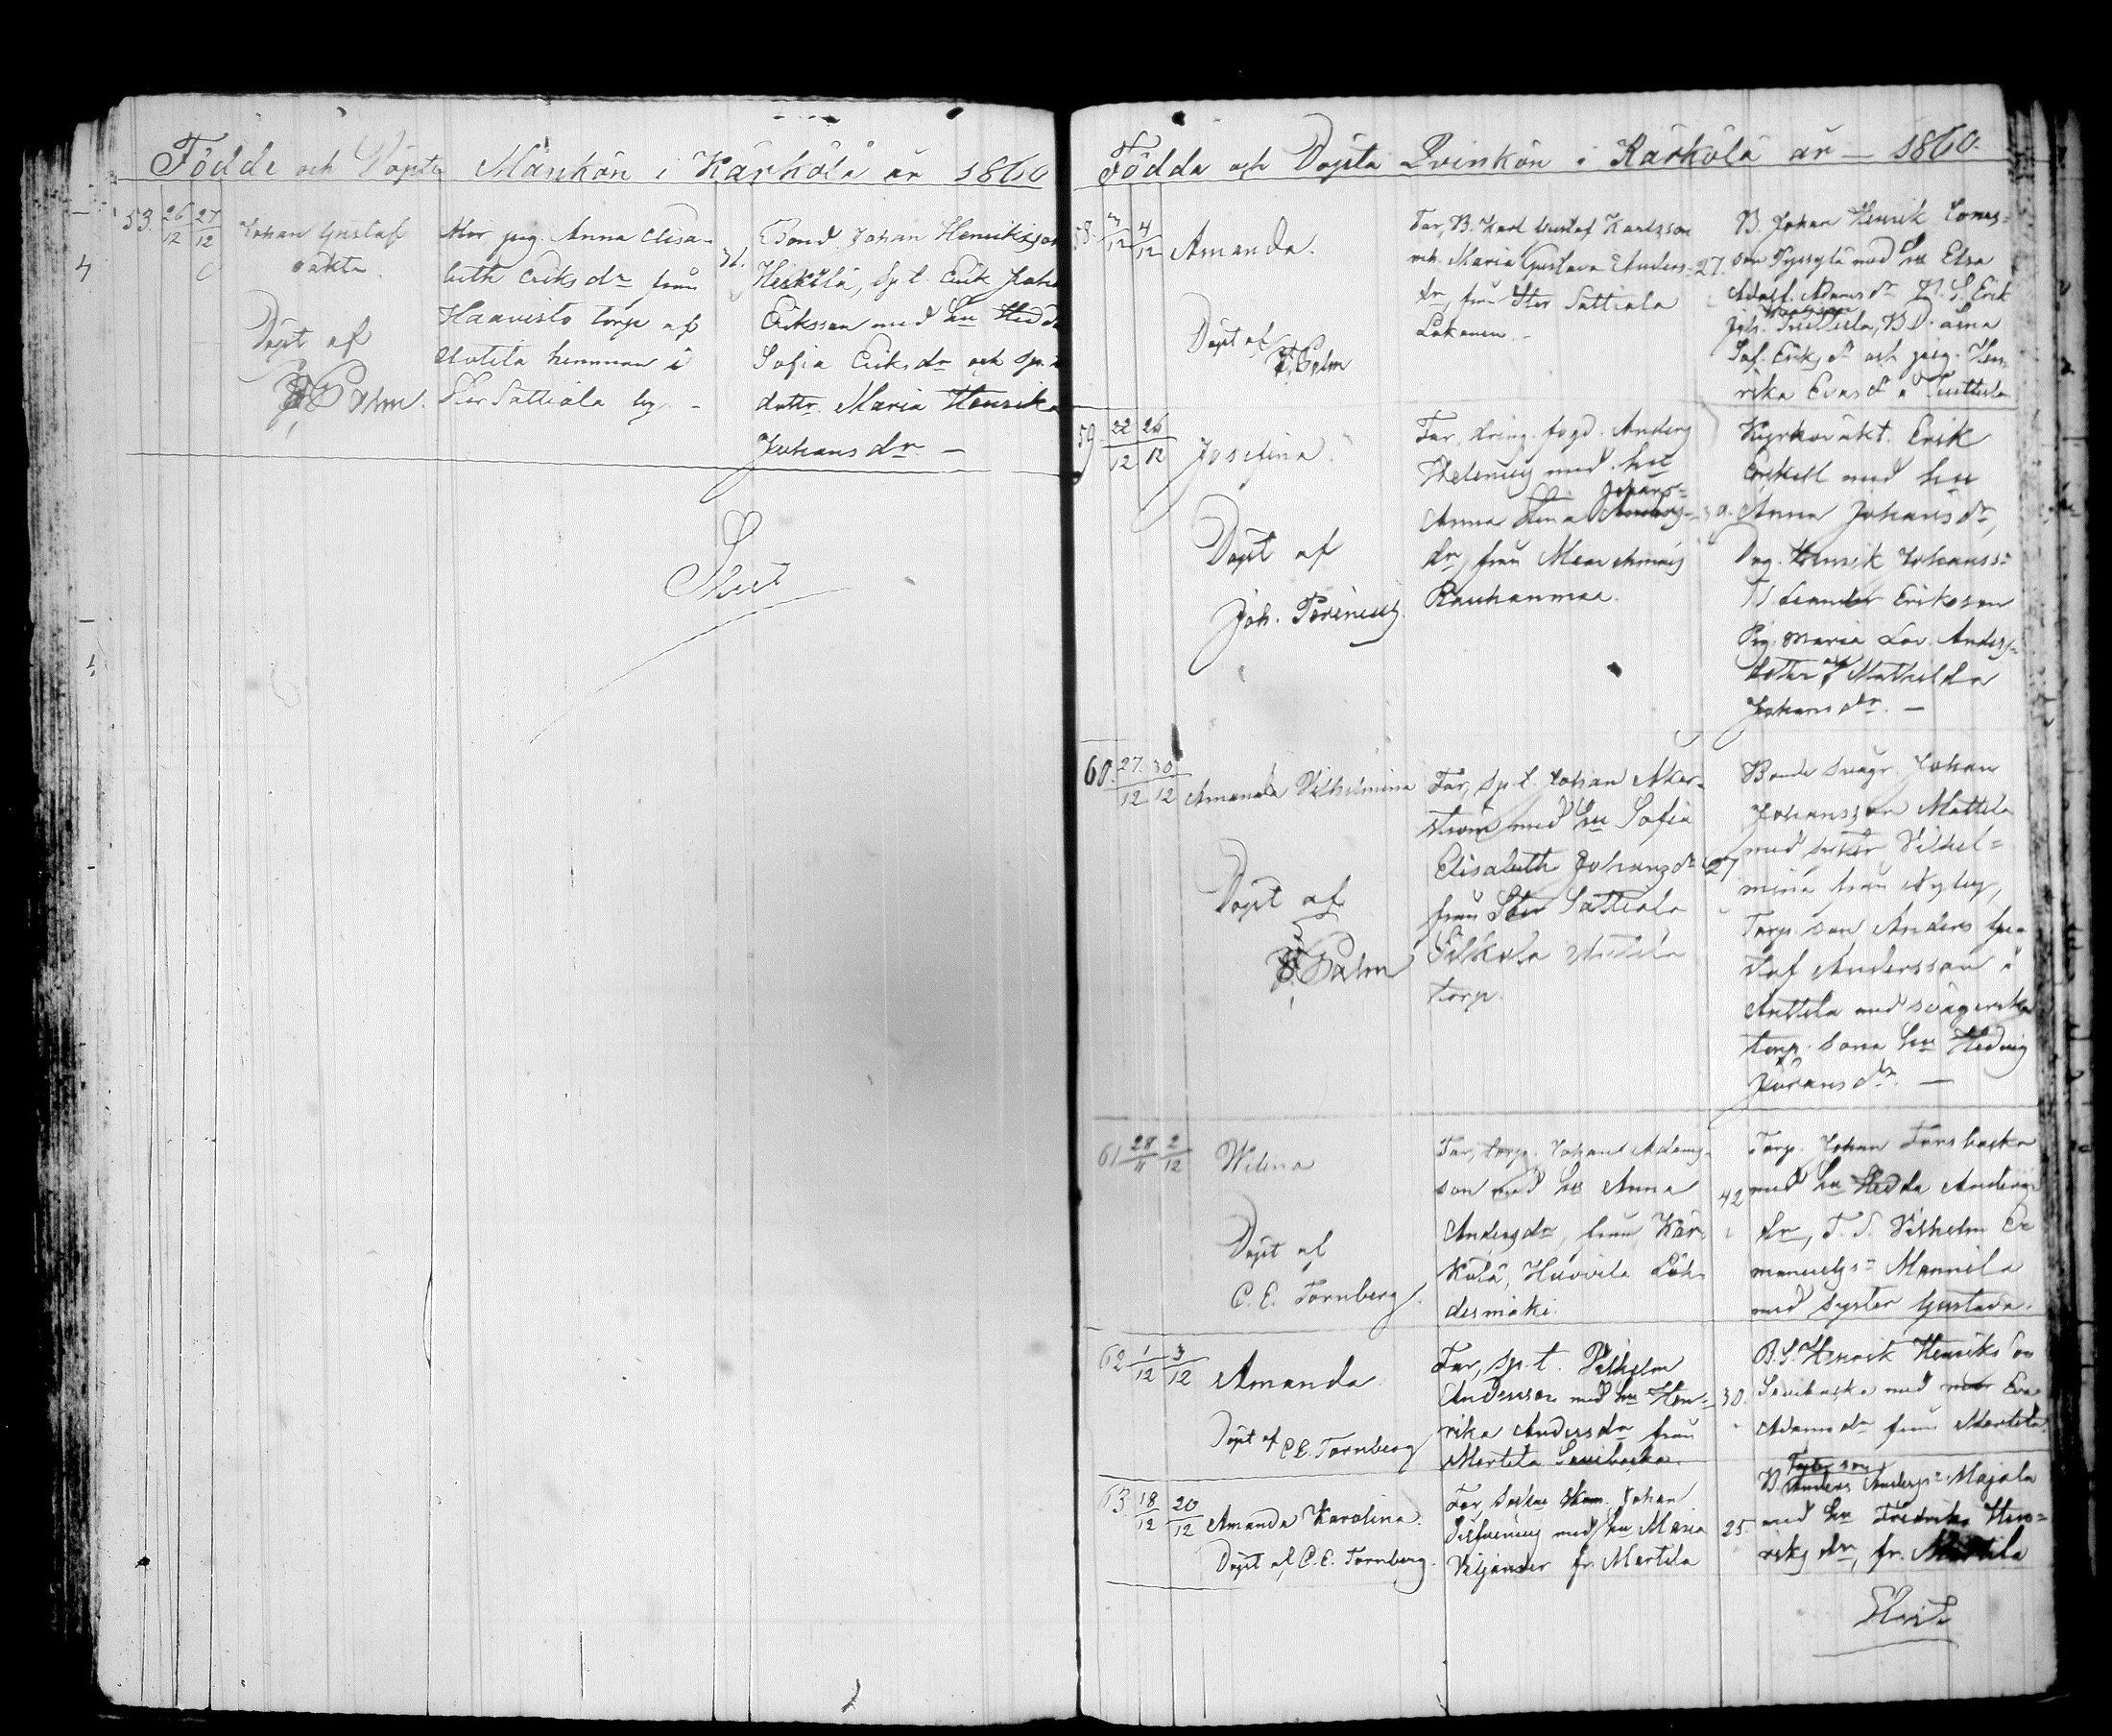 Födde och Döpte Mankön i Kärkölä år 1860
53. 26/12 27/12
Johan Gustaf
oäkta.
Döpt af
Palm.
Mor pig. Anna Elisa-
beth Eriks dr från
Haavisto torp af
Anttila hemman i
Stor Sattiala by. -
31.
Bond. Johan Henriksson
Heikkilä, Sp. t. Erik Joha
Eriksson med hu Hedda
Sofia Eriks dr och sp. t.
dottr. Maria Henrika
Johans dr. -
Slut
Födda och Döpta Qvinkön i Kärkölä år - 1860.
58. 3/12 4/12
Amanda.
Döpt af
Palm
Far, B. Karl Gustaf Karlsson
och Maria Gustava Anders-
dr, från Stor Sattiala
27.
B. Johan Henrik
son med hu Elsa
Adolf. Adams dr Erik
Joh. Tuittula, B. D. Lena
Sof. Eriks dr och pig. Hen-
rika Evas dr a Tuittula
59 22/12 26/12
Josefina.
Döpt af
Joh.
Far, dräng. fogd. Anders
Helenius med hu
Johans-
Anna Lena
dr, från
Rauhanmaa.
Kyrkoväkt. Erik
med hu
Anna Johans dr,
Drg. Henrik Johanss=
T. S. Leander Eriksson
Pig. Maria Lov. Anders-
dotter och Mathilda
Johans dr. -
60. 27/12 30/12
Amanda Vilhelmina
Döpt af
Palm
Far, sp. t. Johan Åker-
ström med hu Sofia
Elisabeth Johans dr
från Stor Sattiala
Anttila
torp.
27
Bonde svågr Johan
Johansson Mattila
med syster Vilhel=
mina från
Torp. son Anders Gu-
staf Andersson i
Anttila med svägerska
torp. sona hu Hedvig
Görans dr. -
61 28/11 2/12
Wilina
Döpt af
C. E. Tornberg.
Far, torp. Johan Adams-
son med hu Anna
Anders dr, från Kär-
kölä, Huovila Läh-
desmäki.
42
Torp. Johan Forsbacka
med hu Hedda Anders
dr, T. S. Vilhelm E
manuels= Mannila
med syster Gustava.
62 1/12 3/12
Amanda
Döpt af C. E. Tornberg
Far, sp. t. Vilhelm
Andersson med hu Hen-
rika Anders dr från
Mertila Savibacka.
30.
B. S. Henrik Henriksson
Savibacka med mor Eva
Adams dr från Mertila.
63. 18/12 20/12
Amanda Karolina.
Döpt af C. E. Tornberg.
Far, Sockne skom. Johan
med hu Maria
Viljander fr. Mertila
25.
B. Anders Anders= Majala
med hu Fredrika Hen=
riks dr, fr. Mertila
Slut